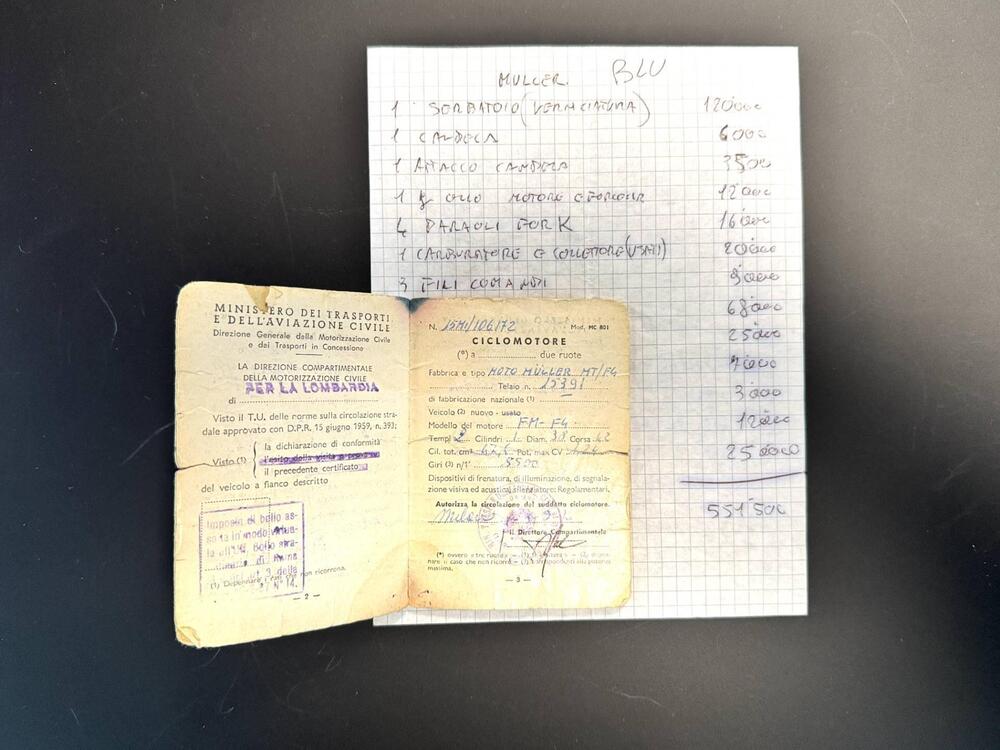 MULLER BLU
1 SERBATOIO (VERNICIATURA) 120000
1 CANDELA 6000
1 ATTACCO CANDELA 3500
1 OLIO MOTORE E 12000
4 PARAOLI FORK 16000
1 CARBURATORE E COLLETTORE (USATI) 20000
3 FILI COMANDI 9000
68000
25000
7000
3000
12000
250000
551500
MINISTERO DEI TRASPORTI
E DELL'AVIAZIONE CIVILE
Direzione Generale della Motorizzazione Civile
e dei Trasporti in Concessione
LA DIREZIONE COMPARTIMENTALE
DELLA MOTORIZZAZIONE CIVILE
PER LA LOMBARDIA
di
Visto il T.U. delle norme sulla circolazione stra-
dale approvato con D.P.R. 15 giugno 1959, n. 393;
la dichiarazione di conformità
Visto (1) l'esito della visita e prova
il precedente certificato
del veicolo a fianco descritto
Imposta di bollo as-
solta in modo virtua-
le
di
3 della
N° 14.
(1) Depennare i casi che non ricorrono.
— 2 —
N. 15MI/106172 Mod. MC 801
CICLOMOTORE
(*) a ............ due ruote
Fabbrica e tipo MOTO MÜLLER MT/F4
Telaio n. 12391
di fabbricazione nazionale (1)
Veicolo (2) nuovo - usato
Modello del motore FM-F4
Tempi 2 Cilindri 1 Diam. 38 Corsa 42
Cil. tot. cm³ 47,6 Pot. max CV
Giri (3) n/1' 5500
Dispositivi di frenatura, di illuminazione, di segnala-
zione visiva ed acustica, silenziatore: Regolamentari.
Autorizza la circolazione del suddetto ciclomotore.
Milano
Il Direttore Compartimentale
(*) ovvero a tre ruote
massima.
— 3 —